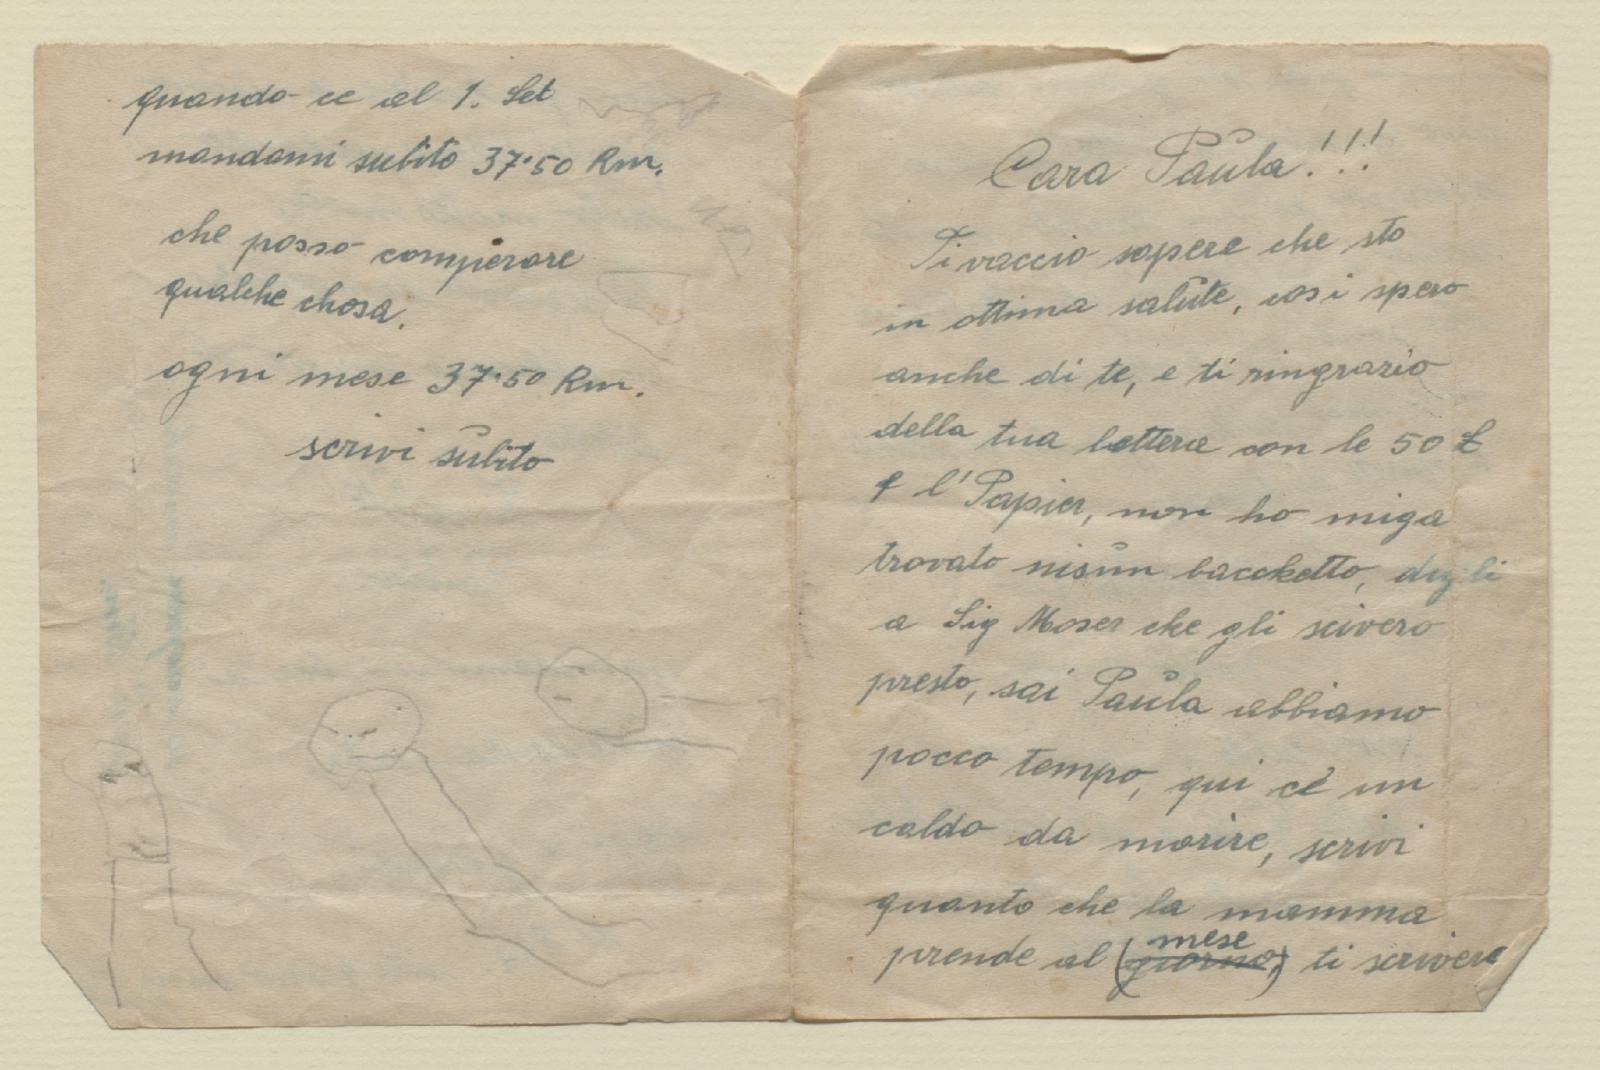 Cara Paŭla!!!
Ti vaccio sapere che sto
in ottima salŭte, cosi spero
anche di te, e ti ringrazio
della tua lettera con le 50 £
e l'Papier, non ho miga
trovato nisŭn bacchetto, digli
a Sig Moser che gli scivero
presto, sai Paŭla abbiamo
pocco tempo, qui cè un
caldo da morire, scrivi
quanto che la mamma
prende al (giorno,) mese ti scrivere
quando ce al 1. Set
mandami subito 37·50 Rm.
che posso comperare
qualche chosa.
ogni mese 37·50 Rm.
scrivi sŭbito